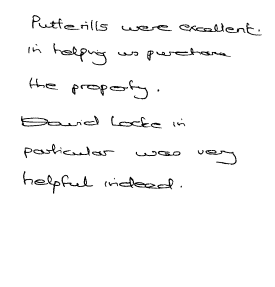 Putterills were excellent.
in helping us purchase
the property.
David Locke in
particular was very
helpful indeed.